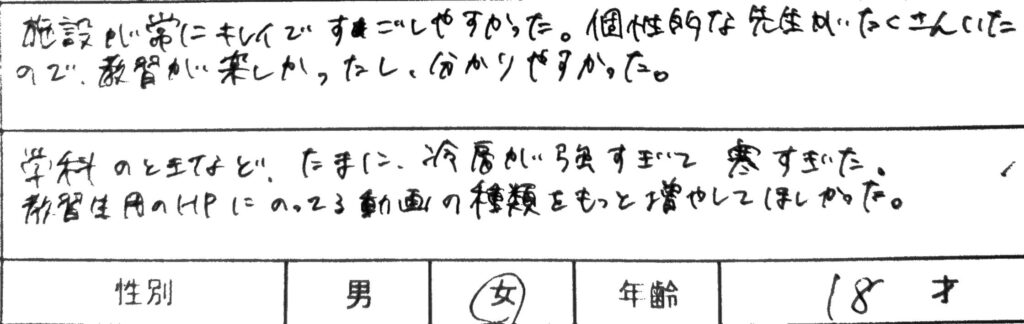 施設が常にキレイですごしやすかった。個性的な先生がたくさんいた
ので、教習が楽しかったし、分かりやすかった。
学科のときなど、たまに、冷房が強すぎて寒すぎた。
教習生用のHPにのってる動画の種類をもっと増やしてほしかった。
性別 男 女 年齢 18才